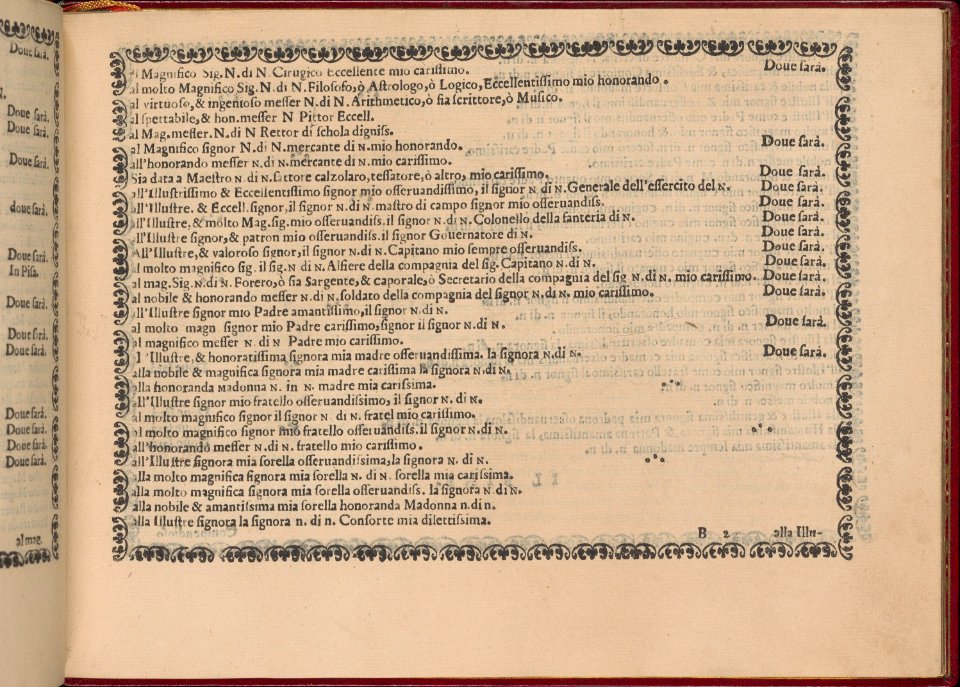 Doue sarà.
Doue sarà.
Doue sarà.
Doue sarà.
doue sarà.
Doue sarà.
In Pisa.
Doue sarà.
Doue sarà.
Doue sarà.
Doue sarà.
Doue sarà.
Doue sarà.
Doue sarà.
al mag.
al Magnifico Sig. N. di N Cirugico Eccellente mio carissimo. Doue sarà.
al molto Magnifico Sig. N. di N. Filosofo, ò Astrologo, ò Logico, Eccellentissimo mio honorando.
al virtuoso, & ingenioso messer N. di N. Arithmetico, ò sia scrittore, ò Musico.
al spettabile, & hon. messer N Pittor Eccell.
al Mag. messer. N. di N Rettor di schola digniss.
al Magnifico signor N. di N. mercante di N. mio honorando. Doue sarà.
all'honorando messer N. di N. mercante di N. mio carissimo.
Sia data a Maestro N. di N. sartore calzolaro, tessatore, ò altro, mio carissimo. Doue sarà.
all'Illustrissimo & Eccellentissimo signor mio osseruandissimo, il signor N di N. Generale dell'essercito del N. Doue sarà.
all'Illustre. & Eccell. signor, il signor N. di N. mastro di campo signor mio osseruandiss. Doue sarà.
all'Illustre, & molto Mag. sig. mio osseruandiss. il signor N. di N. Colonello della fanteria di N. Doue sarà.
all'Illustre signor, & patron mio osseruandiss. il signor Gouernatore di N. Doue sarà.
All'Illustre, & valoroso signor, il signor N. di N. Capitano mio sempre osseruandiss. Doue sarà.
al molto magnifico sig. il sig. N di N. Alfiere della compagnia del sig. Capitano N. di N. Doue sarà.
al mag. Sig. N. di N. Forero, ò sia Sargente, & caporale, ò Secretario della compagnia del sig N. di N. mio carissimo Doue sarà.
al nobile & honorando messer N. di N. soldato della compagnia del signor N. di N. mio carissimo. Doue sarà.
all'Illustre signor mio Padre amantissimo, il signor N. di N.
al molto magn signor mio Padre carissimo, signor il signor N. di N. Doue sarà.
al magnifico messer N. di N Padre mio carissimo.
l'Illustre, & honoratissima signora mia madre osseruandissima. la signora N. di N. Doue sarà.
alla nobile & magnifica signora mia madre carissima la signora N. di N.
alla honoranda Madonna N. in N. madre mia carissima.
all'Illustre signor mio fratello osseruandissimo, il signor N. di N.
al molto magnifico signor il signor N. di N. fratel mio carissimo.
al molto magnifico signor mio fratello osseruandiss. il signor N. di N.
all'honorando messer N. di N. fratello mio carissimo.
all'Illustre signora mia sorella osseruandissima, la signora N. di N.
alla molto magnifica signora mia sorella N. di N. sorella mia carissima.
alla molto magnifica signora mia sorella osseruandiss. la signora N. di N.
alla nobile & amantissima mia sorella honoranda Madonna n. di n.
alla Illustre signora la signora n. di n. Consorte mia dilettissima.
B 2 alla Illu-